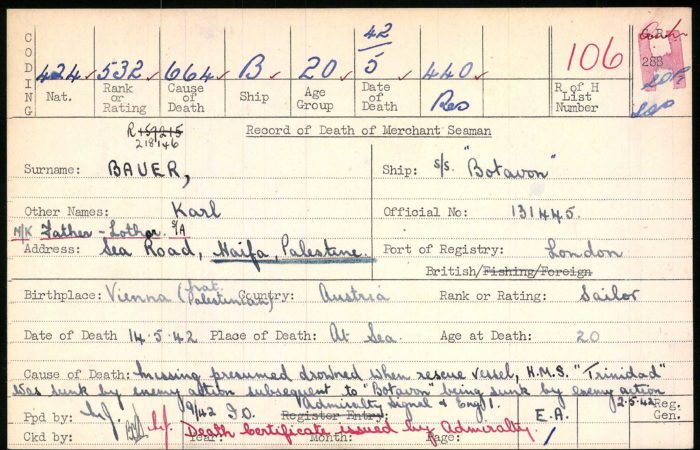 CODING
424 532 664 B 20 42/5 440 106
Nat. Rank or Rating Cause of Death Ship Age Group Date of Death Res R of H List Number
28B
R 159215
218146
Record of Death of Merchant Seaman
Surname: BAUER, Ship: s/s. "Botavon"
Other Names: Karl Official No: 131445.
N/K Father - Lothar. S/A
Address: Sea Road, Haifa, Palestine. Port of Registry: London
British/Fishing/Foreign
Birthplace: Vienna (nat. Palestinian) Country: Austria Rank or Rating: Sailor
Date of Death 14.5.42 Place of Death: At Sea. Age at Death: 20
Cause of Death: missing presumed drowned when rescue vessel, H.M.S. "Trinidad"
was sunk by enemy action subsequent to "Botavon" being sunk by enemy action
2.5.42
Admiralty signal &
Ppd by: 9/42 Register Entry: E.A. Reg. Gen.
Death Certificate issued by Admiralty.
Ckd by: Year: Month: Page: 1